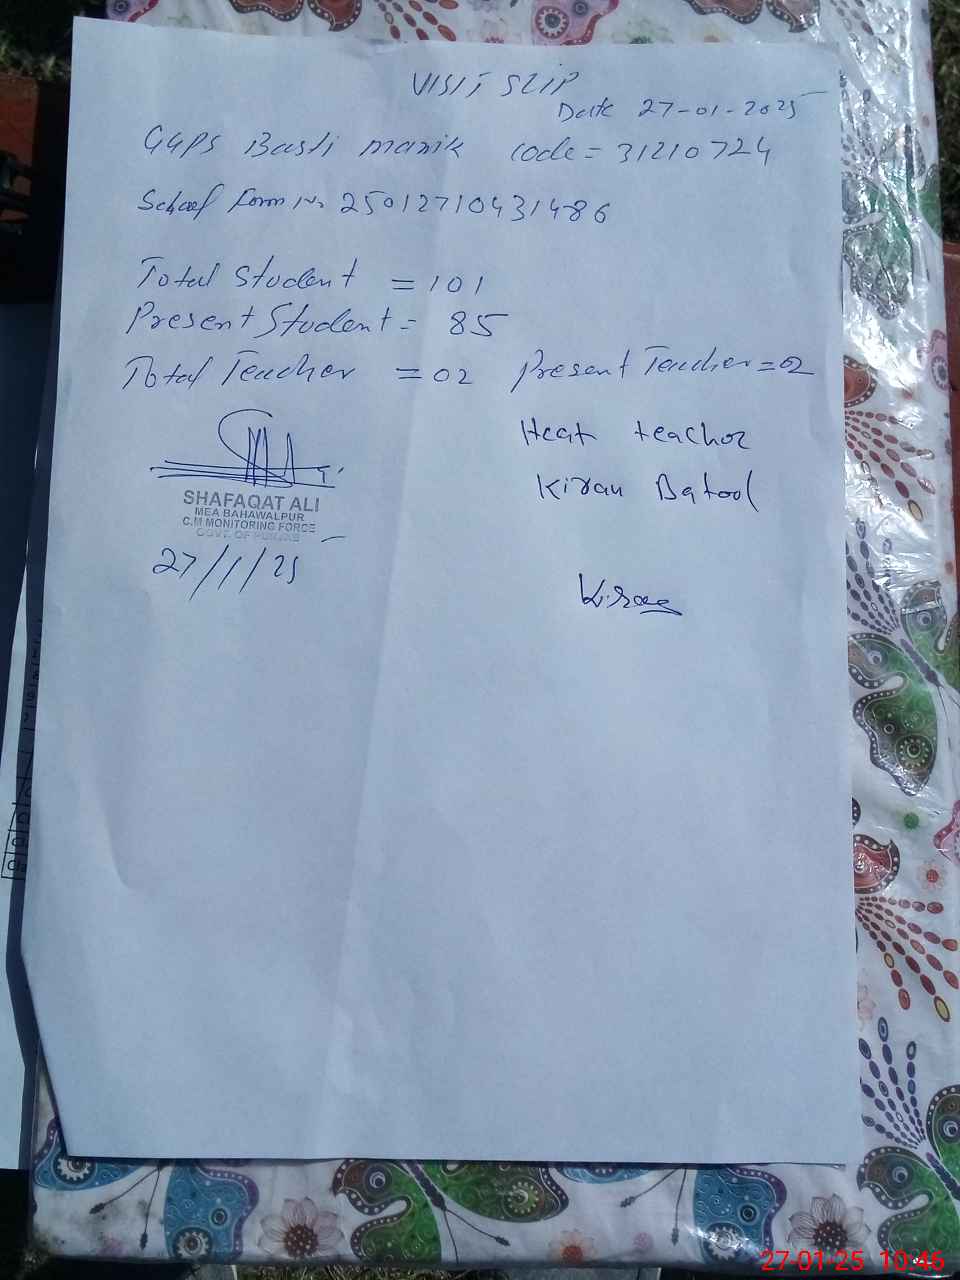 VISIT SLIP
Date 27-01-2025
GGPS Basti manik code = 31210724
School Form No 25012710431486
Total Student = 101
Present Student = 85
Total Teacher = 02 Present Teacher = 02
Heat teacher
Kiran Batool
SHAFAQAT ALI
MEA BAHAWALPUR
C.M MONITORING FORCE
GOVT. OF PUNJAB
27/1/25
Kiran
27-01-25 10:46